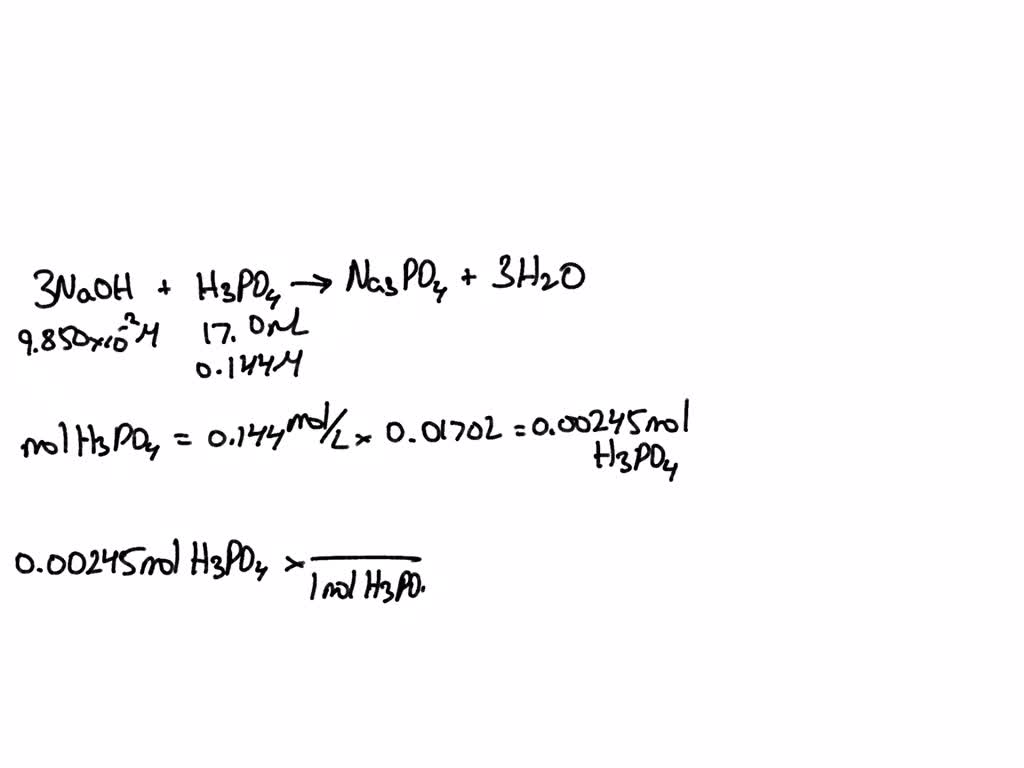 3NaOH + H3PO4 → Na3PO4 + 3H2O
9.850×10⁻²M 17.0mL
0.144M
mol H3PO4 = 0.144 mol/L × 0.0170L = 0.00245mol
H3PO4
0.00245mol H3PO4 ×
1mol H3PO